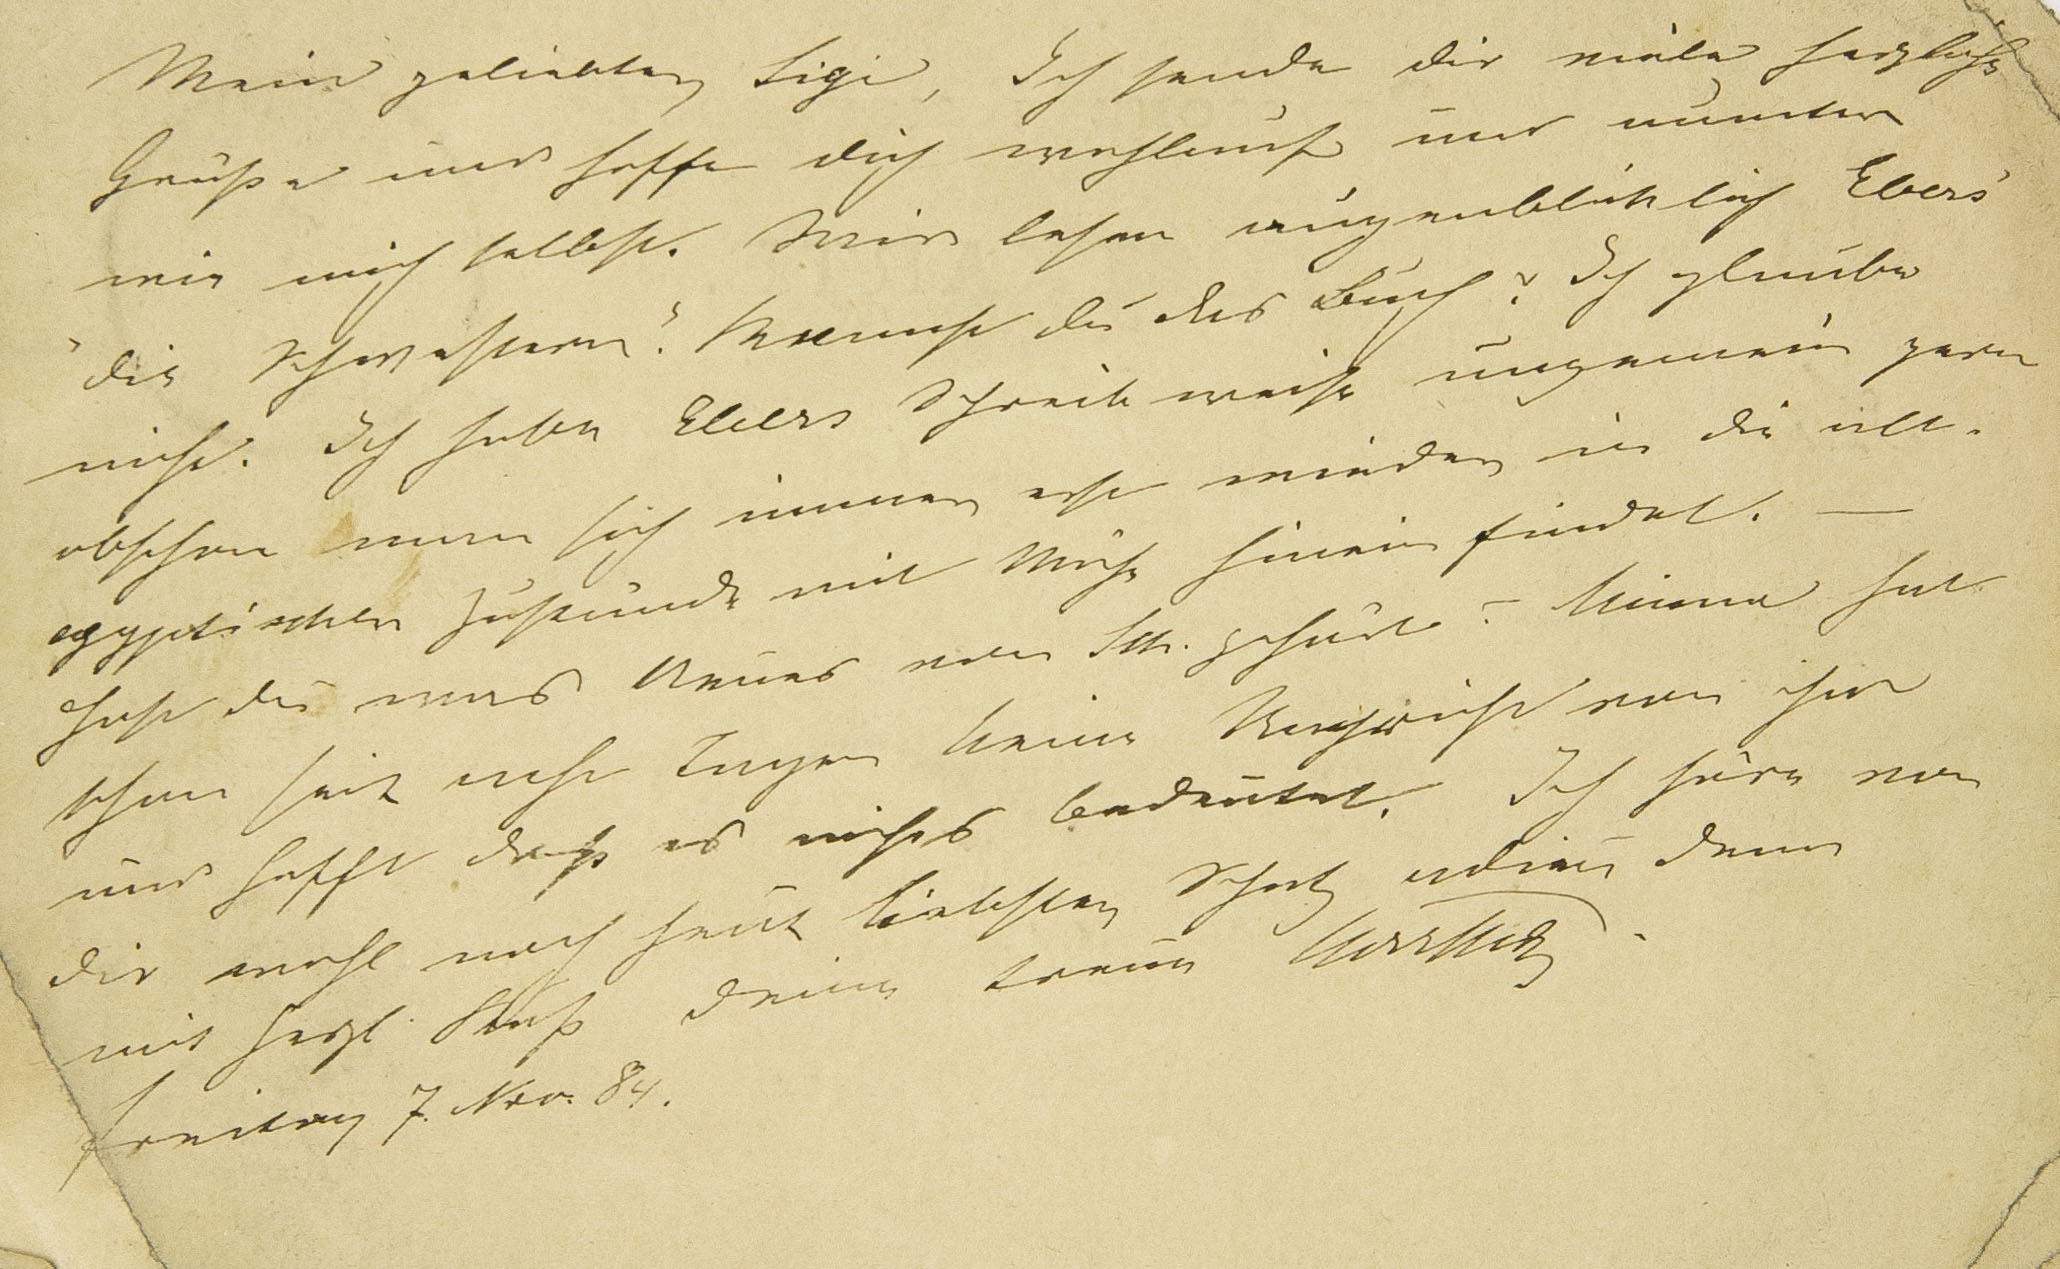 Mein geliebter Sigi, Ich sende dir viele herzliche
Grüße und hoffe dich wohlauf und munter
wie mich selbst. Wir lesen augenblicklich Ebers'
"die Schwestern". Kennst du das Buch? Ich glaube
nicht. Ich habe Ebers Schreibweise ungemein gern
obschon man sich immer erst wieder in die alt-
egyptischen Zustände mit Mühe hinein findet. —
Hast du was Neues von Sch. gehört? Minna hat
schon seit acht Tagen keine Nachricht von ihm
und hofft daß es nichts bedeutet. Ich höre von
dir wohl noch heut liebster Schatz adieu denn
mit herzl. Kuß deine treue
Freitag 7. Nov. 84.